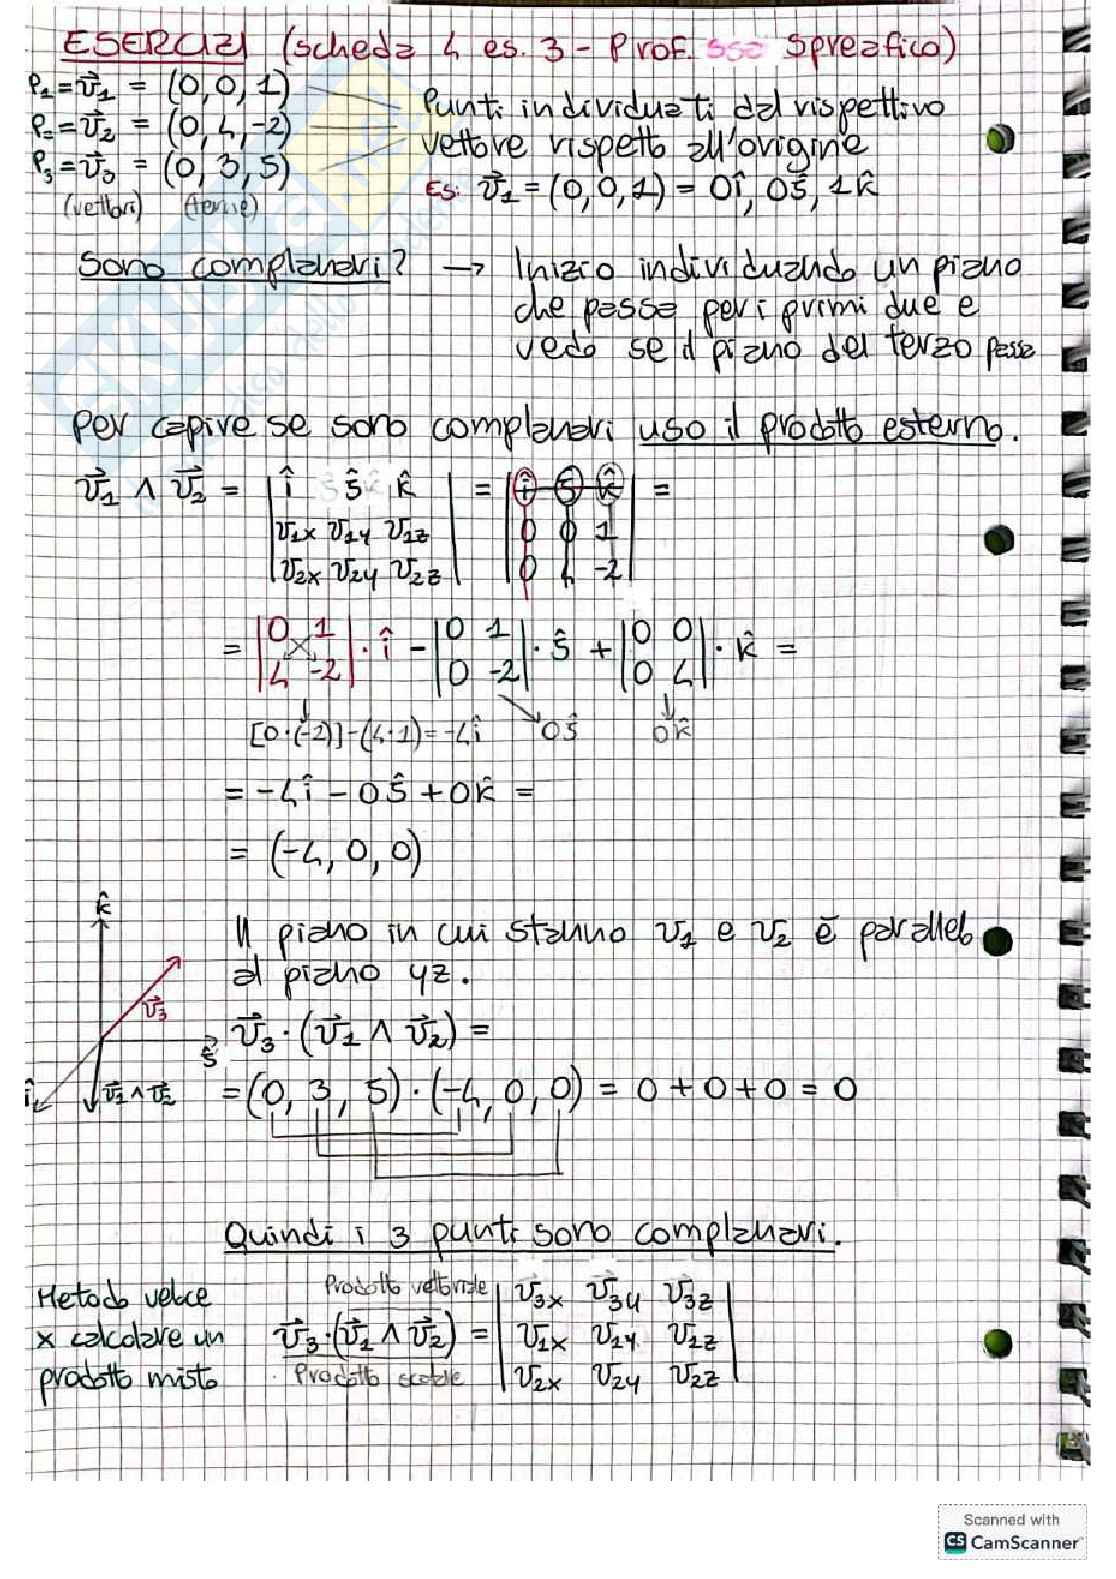 ESERCIZI (scheda 4 es. 3 - Prof.ssa Spreafico)
P₁ = v⃗₁ = (0, 0, 1)
P₂ = v⃗₂ = (0, 4, -2)
P₃ = v⃗₃ = (0, 3, 5)
(vettori) (terne)
Punti individuati dal rispettivo
vettore rispetto all'origine
Es: v⃗₁ = (0, 0, 1) = 0î, 0ĵ, 1k̂
Sono complanari? → Inizio individuando un piano
che passa per i primi due e
vedo se il piano del terzo passa
Per capire se sono complanari uso il prodotto esterno.
v⃗₁ ∧ v⃗₂ = | î ĵ k̂ | = | î ĵ k̂ | =
| v₁x v₁y v₁z | | 0 0 1 |
| v₂x v₂y v₂z | | 0 4 -2 |
= | 0 1 | · î - | 0 1 | · ĵ + | 0 0 | · k̂ =
| 4 -2 | | 0 -2 | | 0 4 |
[0·(-2)]-(4·1)=-4î 0ĵ 0k̂
= -4î - 0ĵ + 0k̂ =
= (-4, 0, 0)
k̂
v⃗₃
ĵ
î
v⃗₁ ∧ v⃗₂
Il piano in cui stanno v₁ e v₂ è parallelo
al piano yz.
v⃗₃ · (v⃗₁ ∧ v⃗₂) =
= (0, 3, 5) · (-4, 0, 0) = 0 + 0 + 0 = 0
Quindi i 3 punti sono complanari.
Metodo veloce
x calcolare un
prodotto misto
Prodotto vettoriale
v⃗₃ · (v⃗₁ ∧ v⃗₂) = | v₃x v₃y v₃z |
| v₁x v₁y v₁z |
| v₂x v₂y v₂z |
Prodotto scalare
Scanned with
CS CamScanner